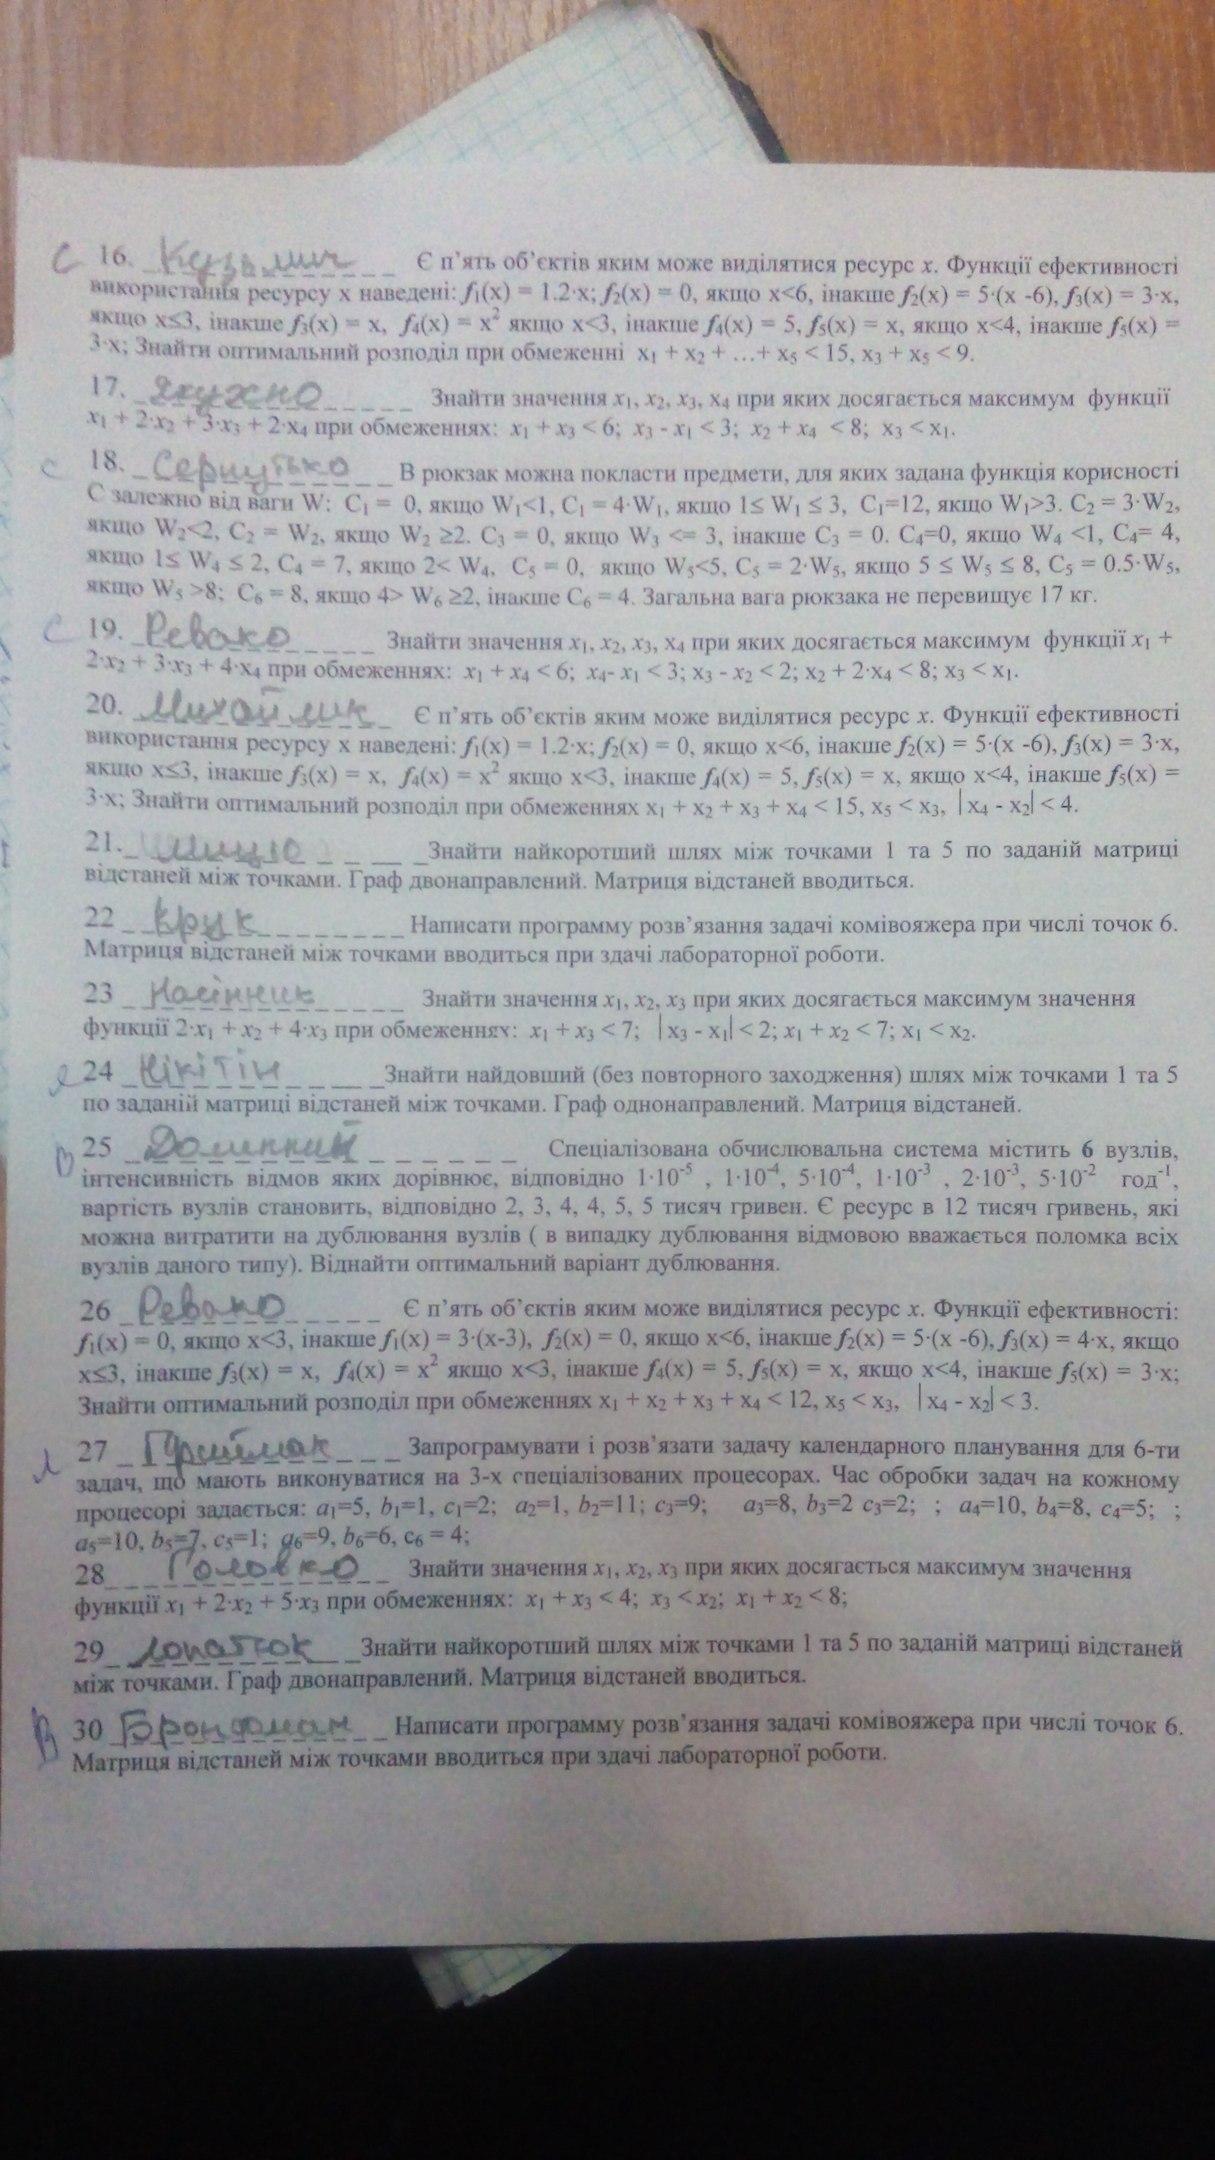 С 16. Кузьмич Є п’ять об’єктів яким може виділятися ресурс x. Функції ефективності
використання ресурсу x наведені: f₁(x) = 1.2·x; f₂(x) = 0, якщо x<6, інакше f₂(x) = 5·(x -6), f₃(x) = 3·x,
якщо x≤3, інакше f₃(x) = x, f₄(x) = x² якщо x<3, інакше f₄(x) = 5, f₅(x) = x, якщо x<4, інакше f₅(x) =
3·x; Знайти оптимальний розподіл при обмеженні x₁ + x₂ + …+ x₅ < 15, x₃ + x₅ < 9.
17. Якухно Знайти значення x₁, x₂, x₃, x₄ при яких досягається максимум функції
x₁ + 2·x₂ + 3·x₃ + 2·x₄ при обмеженнях: x₁ + x₃ < 6; x₃ - x₁ < 3; x₂ + x₄ < 8; x₃ < x₁.
С 18. В рюкзак можна покласти предмети, для яких задана функція корисності
С залежно від ваги W: C₁ = 0, якщо W₁<1, C₁ = 4·W₁, якщо 1≤ W₁ ≤ 3, C₁=12, якщо W₁>3. C₂ = 3·W₂,
якщо W₂<2, C₂ = W₂, якщо W₂ ≥2. C₃ = 0, якщо W₃ <= 3, інакше C₃ = 0. C₄=0, якщо W₄ <1, C₄= 4,
якщо 1≤ W₄ ≤ 2, C₄ = 7, якщо 2< W₄, C₅ = 0, якщо W₅<5, C₅ = 2·W₅, якщо 5 ≤ W₅ ≤ 8, C₅ = 0.5·W₅,
якщо W₅ >8; C₆ = 8, якщо 4> W₆ ≥2, інакше C₆ = 4. Загальна вага рюкзака не перевищує 17 кг.
С 19. Ревако Знайти значення x₁, x₂, x₃, x₄ при яких досягається максимум функції x₁ +
2·x₂ + 3·x₃ + 4·x₄ при обмеженнях: x₁ + x₄ < 6; x₄- x₁ < 3; x₃ - x₂ < 2; x₂ + 2·x₄ < 8; x₃ < x₁.
20. Михайлик Є п’ять об’єктів яким може виділятися ресурс x. Функції ефективності
використання ресурсу x наведені: f₁(x) = 1.2·x; f₂(x) = 0, якщо x<6, інакше f₂(x) = 5·(x -6), f₃(x) = 3·x,
якщо x≤3, інакше f₃(x) = x, f₄(x) = x² якщо x<3, інакше f₄(x) = 5, f₅(x) = x, якщо x<4, інакше f₅(x) =
3·x; Знайти оптимальний розподіл при обмеженнях x₁ + x₂ + x₃ + x₄ < 15, x₅ < x₃, |x₄ - x₂| < 4.
21. Знайти найкоротший шлях між точками 1 та 5 по заданій матриці
відстаней між точками. Граф двонаправлений. Матриця відстаней вводиться.
22 Крук Написати программу розв’язання задачі комівояжера при числі точок 6.
Матриця відстаней між точками вводиться при здачі лабораторної роботи.
23 Насінник Знайти значення x₁, x₂, x₃ при яких досягається максимум значення
функції 2·x₁ + x₂ + 4·x₃ при обмеженнях: x₁ + x₃ < 7; |x₃ - x₁| < 2; x₁ + x₂ < 7; x₁ < x₂.
24 Нікітін Знайти найдовший (без повторного заходження) шлях між точками 1 та 5
по заданій матриці відстаней між точками. Граф однонаправлений. Матриця відстаней.
В 25 Долинний Спеціалізована обчислювальна система містить 6 вузлів,
інтенсивність відмов яких дорівнює, відповідно 1·10⁻⁵ , 1·10⁻⁴, 5·10⁻⁴, 1·10⁻³ , 2·10⁻³, 5·10⁻² год⁻¹,
вартість вузлів становить, відповідно 2, 3, 4, 4, 5, 5 тисяч гривен. Є ресурс в 12 тисяч гривень, які
можна витратити на дублювання вузлів ( в випадку дублювання відмовою вважається поломка всіх
вузлів даного типу). Віднайти оптимальний варіант дублювання.
26 Ревако Є п’ять об’єктів яким може виділятися ресурс x. Функції ефективності:
f₁(x) = 0, якщо x<3, інакше f₁(x) = 3·(x-3), f₂(x) = 0, якщо x<6, інакше f₂(x) = 5·(x -6), f₃(x) = 4·x, якщо
x≤3, інакше f₃(x) = x, f₄(x) = x² якщо x<3, інакше f₄(x) = 5, f₅(x) = x, якщо x<4, інакше f₅(x) = 3·x;
Знайти оптимальний розподіл при обмеженнях x₁ + x₂ + x₃ + x₄ < 12, x₅ < x₃, |x₄ - x₂| < 3.
27 Приймак Запрограмувати і розв’язати задачу календарного планування для 6-ти
задач, що мають виконуватися на 3-х спеціалізованих процесорах. Час обробки задач на кожному
процесорі задається: a₁=5, b₁=1, c₁=2; a₂=1, b₂=11; c₃=9; a₃=8, b₃=2 c₃=2; ; a₄=10, b₄=8, c₄=5; ;
a₅=10, b₅=7, c₅=1; a₆=9, b₆=6, c₆ = 4;
28 Головко Знайти значення x₁, x₂, x₃ при яких досягається максимум значення
функції x₁ + 2·x₂ + 5·x₃ при обмеженнях: x₁ + x₃ < 4; x₃ < x₂; x₁ + x₂ < 8;
29 Лопатюк Знайти найкоротший шлях між точками 1 та 5 по заданій матриці відстаней
між точками. Граф двонаправлений. Матриця відстаней вводиться.
В 30 Бронфман Написати программу розв’язання задачі комівояжера при числі точок 6.
Матриця відстаней між точками вводиться при здачі лабораторної роботи.